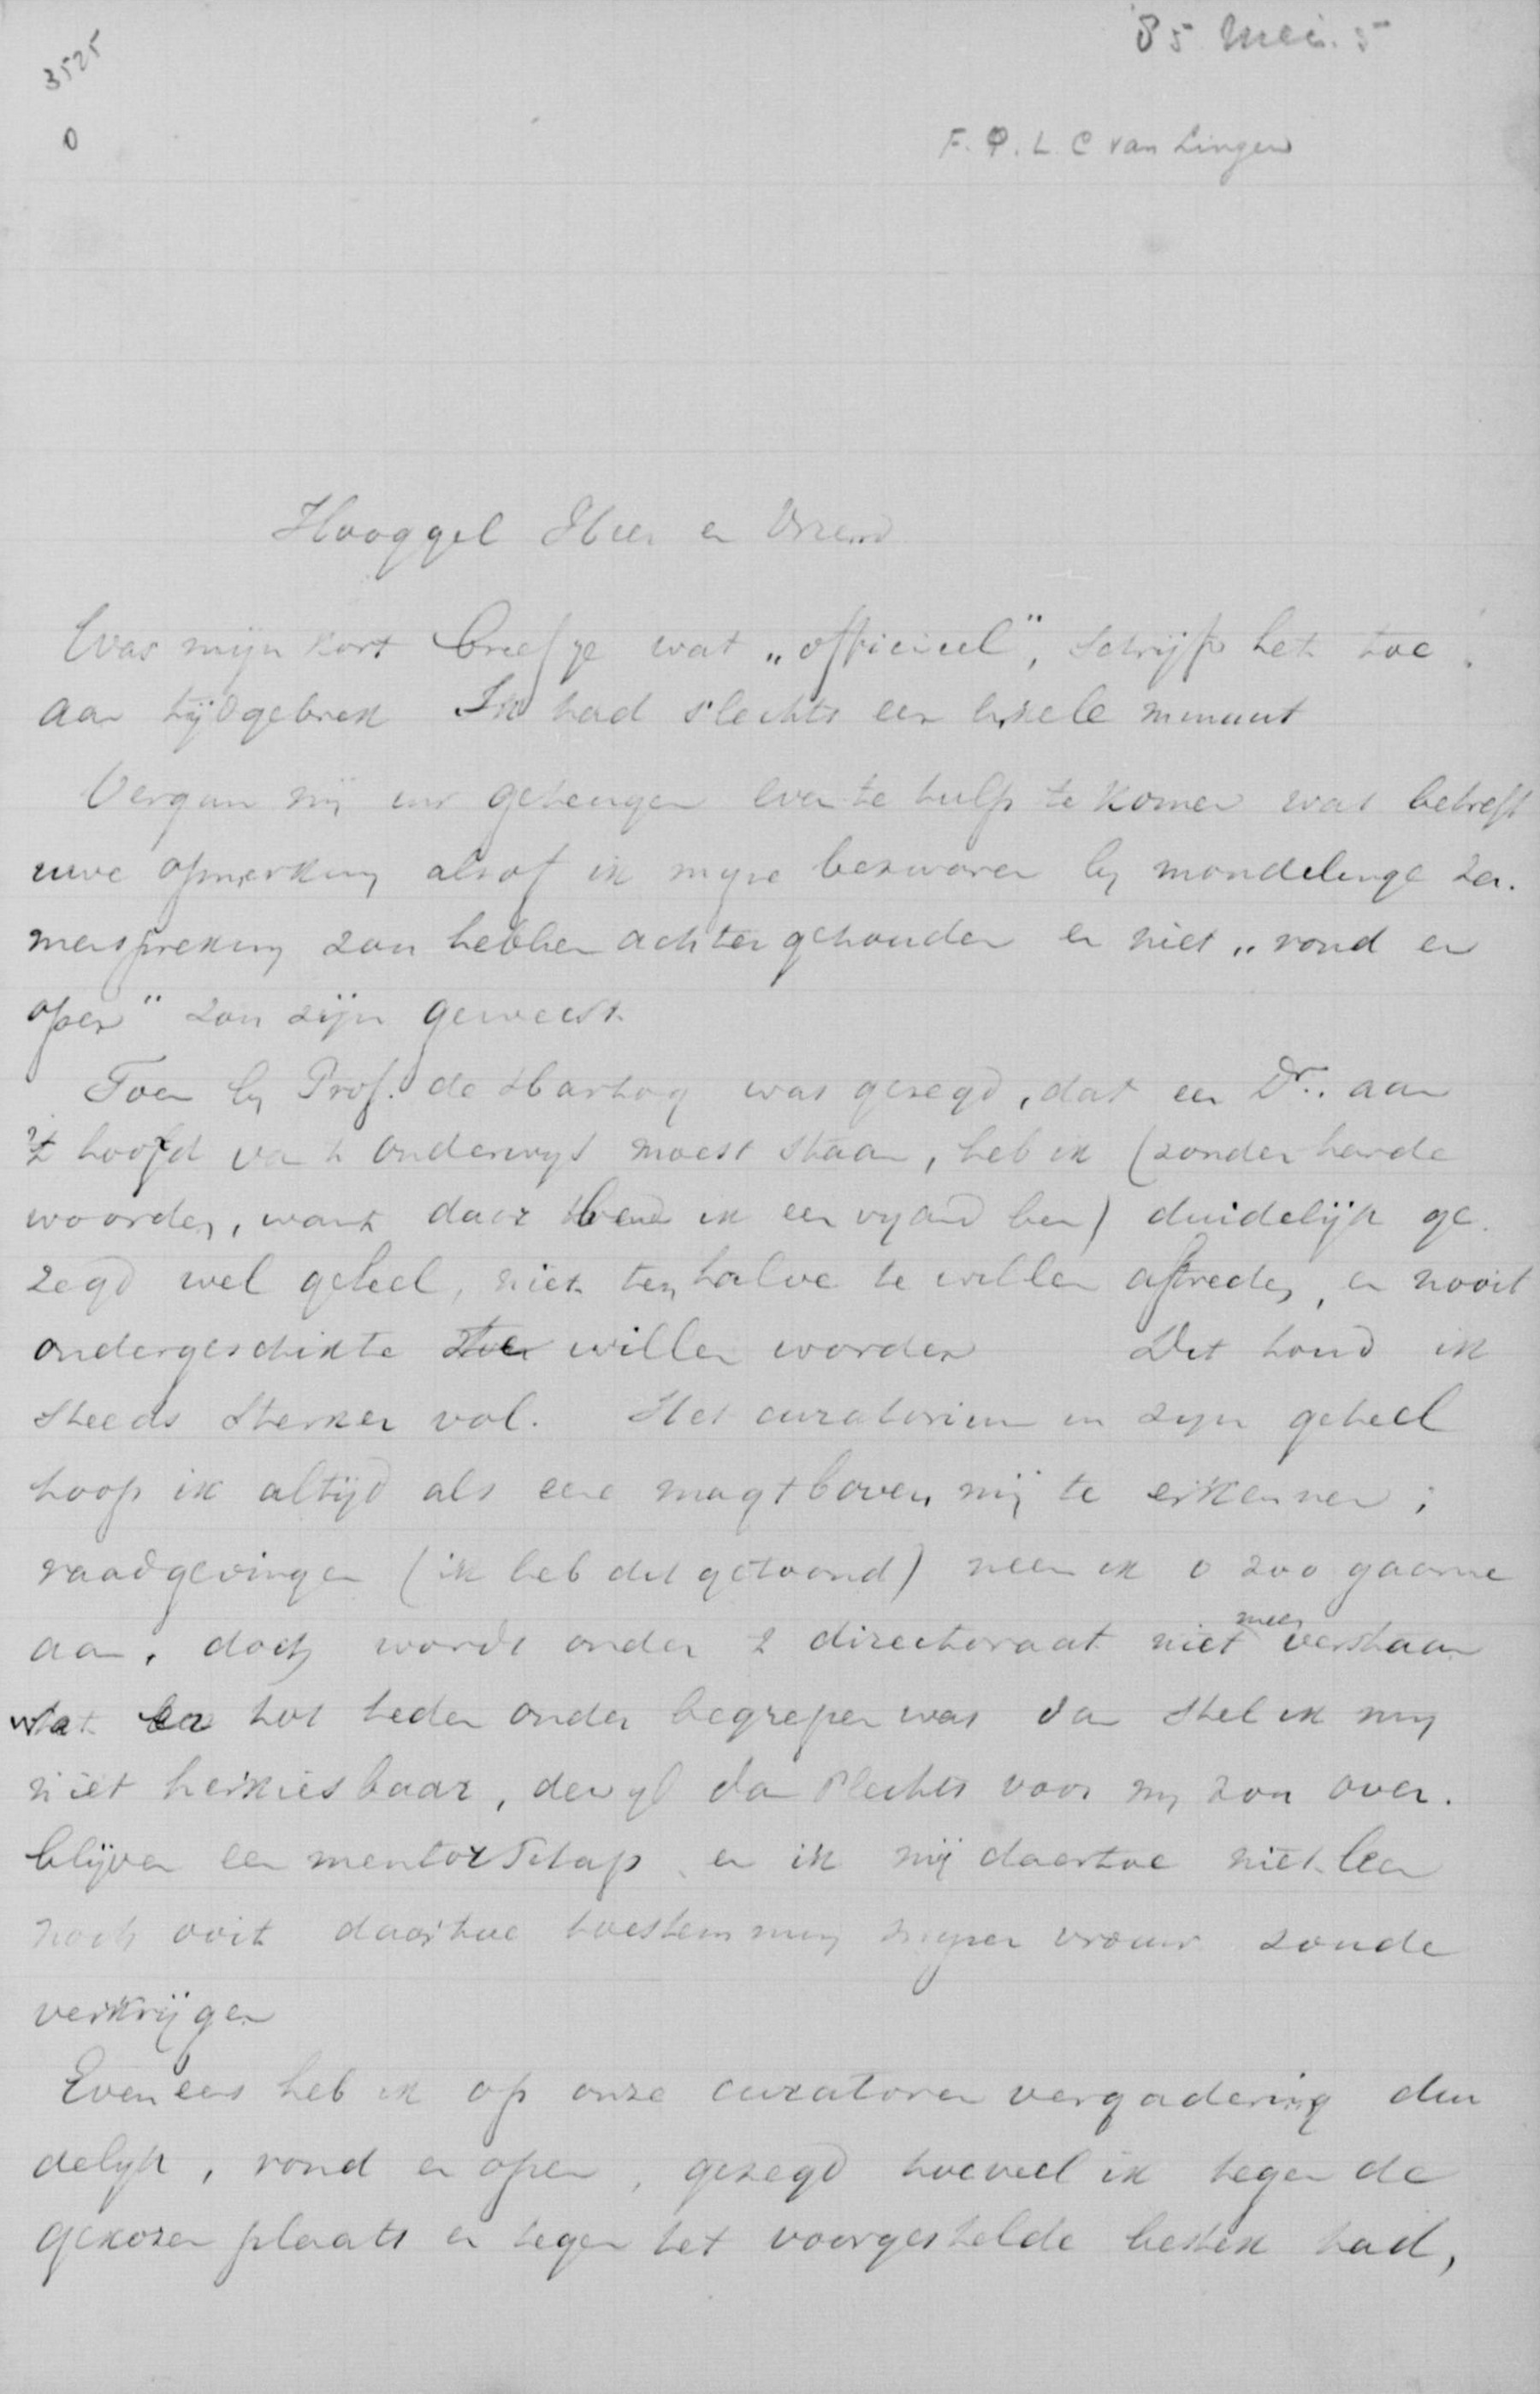 3525
0
85 Mei. 5
F. P. L. C van Lingen
Hooggel Heer en Vriend
Was mijn kort briefje wat „officieel", schrijf het toe
aan tijdgebrek Ik had slechts een enkele minuut
Vergun mij uw geheugen even te hulp te komen wat betreft
uwe opmerking alsof ik mijne bezwaren by mondelinge za-
menspreking zou hebben achtergehouden en niet „rond en
open" zou zijn geweest.
Toen by Prof. de Hartog was gezegd, dat een Dr. aan
't hoofd van 't onderwys moest staan, heb ik (zonder harde
woorden, want daar ik een vyand ben) duidelijk ge-
zegd wel geheel, niet ten halve te willen aftreden, en nooit
ondergeschikte willen worden Dit houd ik
steeds sterker vol. Het curatorium in zyn geheel
hoop ik altijd als eene magt boven mij te erkennen;
raadgevingen (ik heb dit getoond) neem ik o zoo gaarne
aan, doch wordt onder 't directoraat niet meer verstaan
wat er tot heden onder begrepen was dan stel ik my
niet herkiesbaar, dewyl dan slechts voor my zou over-
blijven een mentorschap en ik mij daartoe niet leen
noch ooit daartoe toestemming myner vrouw zoude
verkrijgen
Eveneens heb ik op onze curatoren vergadering dui
delyk, rond en open, gezegd hoeveel ik tegen de
gekozen plaats en tegen het voorgestelde bestek had,